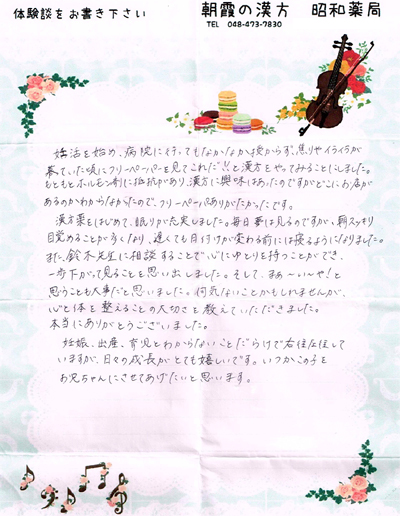 体験談をお書き下さい
朝霞の漢方 昭和薬局
TEL 048-473-7830
妊活を始め、病院に行ってもなかなか授からず、焦りやイライラが
募っていた頃にフリーペーパーを見て「これだ!!」と漢方をやってみることにしました。
もともとホルモン剤に抵抗があり、漢方に興味はあったのですがどこにお店が
あるのかわからなかったので、フリーペーパーありがたかったです。
漢方薬をはじめて、眠りが充実しました。毎日夢は見るのですが、朝スッキリ
目覚めることが多くなり、遅くても日付けが変わる前には寝るようになりました。
また、鈴木先生に相談することで、心にゆとりを持つことができ、
一歩下がって見ることを思い出しました。そして、まぁ〜いーや!と
思うことも大事だと思いました。何気ないことかもしれませんが、
心と体を整えることの大切さを教えていただきました。
本当にありがとうございました。
妊娠、出産、育児とわからないことだらけで右往左往して
いますが、日々の成長がとても嬉しいです。いつかこの子を
お兄ちゃんにさせてあげたいと思います。